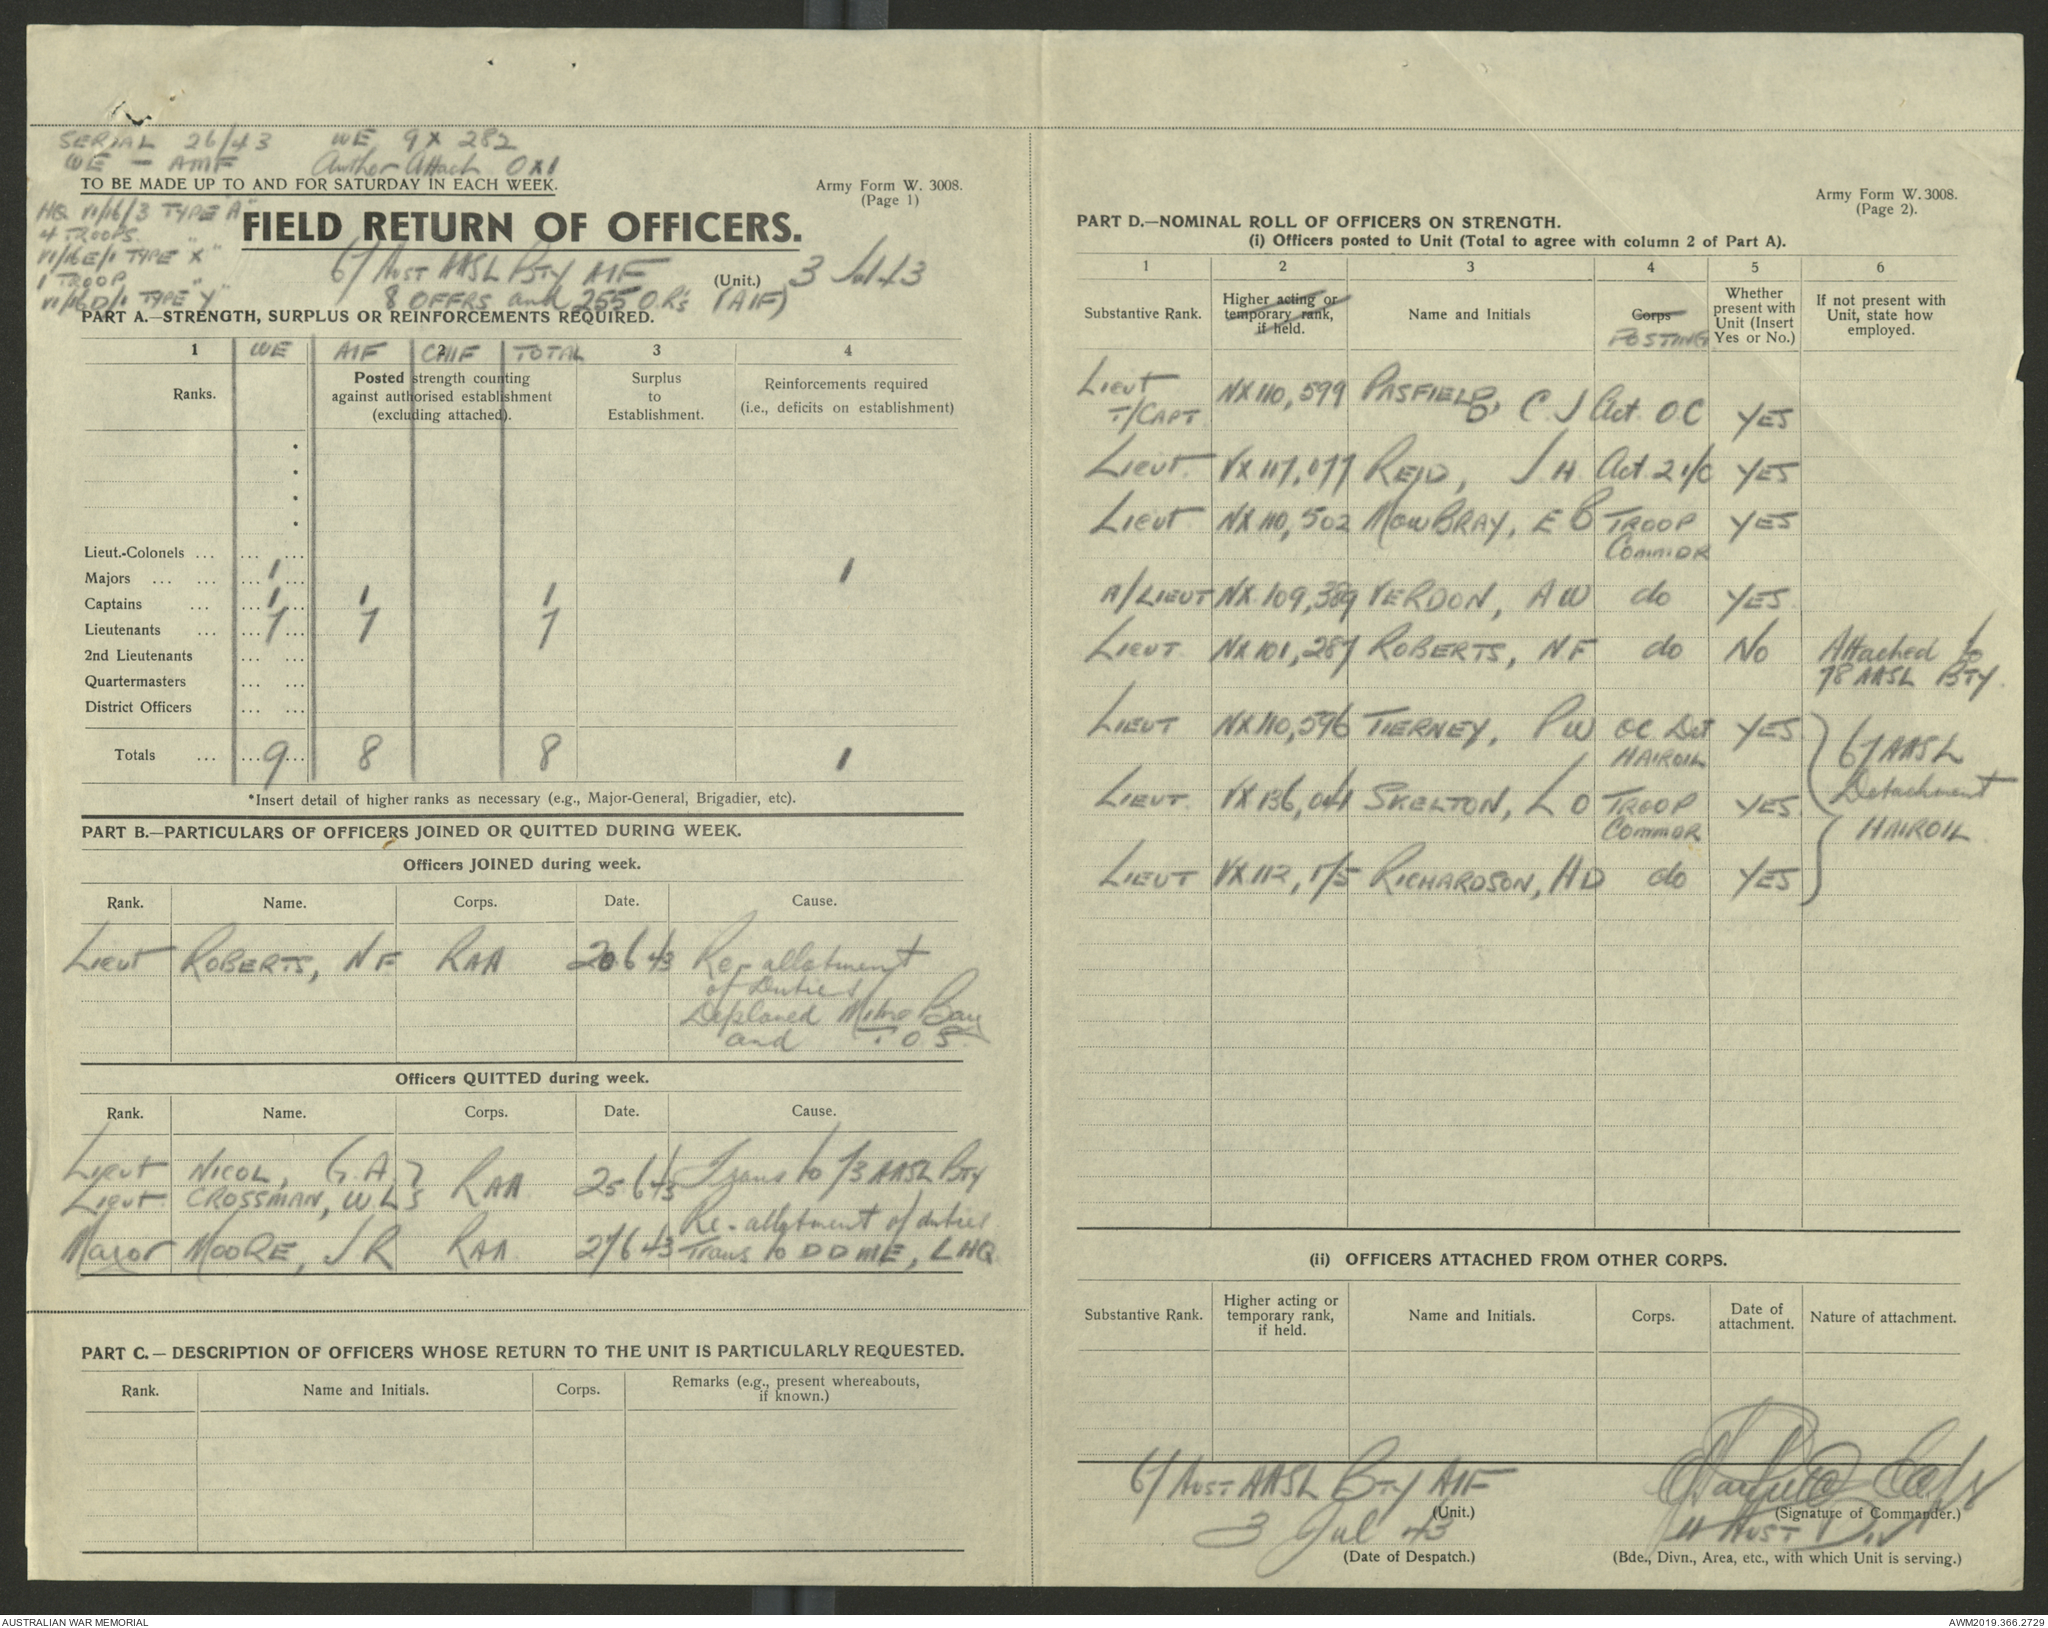 SERIAL 26/43 WE 9 X 282
WE - AMF Author Attach 0 X 1
TO BE MADE UP TO AND FOR SATURDAY IN EACH WEEK.
Army Form W. 3008.
(Page 1)
HQ VI/16/3 TYPE "A"
4 TROOPS "
VI/16E/1 TYPE "X"
1 TROOP "
VI/16D/1 TYPE "Y"
FIELD RETURN OF OFFICERS.
67 AUST AASL BTY AIF (Unit.) 3 Jul 43
8 OFFRS and 255 O.R's (AIF)
PART A.—STRENGTH, SURPLUS OR REINFORCEMENTS REQUIRED.
1 WE AIF 2 CMF TOTAL 3 4
Ranks.
Posted strength counting
against authorised establishment
(excluding attached).
Surplus
to
Establishment.
Reinforcements required
(i.e., deficits on establishment)
Lieut.-Colonels ... ... ...
Majors ... ... ... 1 ... 1
Captains ... ... 1 ... 1 1
Lieutenants ... ... 7 ... 7 7
2nd Lieutenants ... ...
Quartermasters ... ...
District Officers ... ...
Totals ... ... 9 ... 8 8 1
*Insert detail of higher ranks as necessary (e.g., Major-General, Brigadier, etc).
PART B.—PARTICULARS OF OFFICERS JOINED OR QUITTED DURING WEEK.
Officers JOINED during week.
Rank. Name. Corps. Date. Cause.
LIEUT ROBERTS, NF RAA 20 6 43 Re-allotment
of Duties
Deplaned Milne Bay
and T O S.
Officers QUITTED during week.
Rank. Name. Corps. Date. Cause.
LIEUT NICOL, G.A } RAA 25 6 43 Trans to 73 AASL BTY
LIEUT CROSSMAN, WL
MAJOR MOORE, J R RAA 27 6 43 Re-allotment of duties
Trans to DDME, LHQ
PART C.— DESCRIPTION OF OFFICERS WHOSE RETURN TO THE UNIT IS PARTICULARLY REQUESTED.
Rank. Name and Initials. Corps. Remarks (e.g., present whereabouts,
if known.)
Army Form W. 3008.
(Page 2).
PART D.—NOMINAL ROLL OF OFFICERS ON STRENGTH.
(i) Officers posted to Unit (Total to agree with column 2 of Part A).
1 2 3 4 5 6
Substantive Rank.
Higher acting or
temporary rank,
if held.
Name and Initials
Corps
POSTING
Whether
present with
Unit (Insert
Yes or No.)
If not present with
Unit, state how
employed.
LIEUT
T/CAPT NX 110,599 PASFIELD, C J Act OC YES
LIEUT VX 117,077 REID, J H Act 2 i/c YES
LIEUT NX 110,502 MOWBRAY, E B TROOP
COMMDR YES
A/LIEUT NX 109,389 VERDON, A W do YES
LIEUT NX 101,287 ROBERTS, NF do NO Attached to
78 AASL BTY.
LIEUT NX 110,596 TIERNEY, P W OC Det
HAIROIL YES
LIEUT VX 136,041 SKELTON, L O TROOP
COMMDR YES
LIEUT VX 112,175 RICHARDSON, HD do YES
67 AASL
Detachment
HAIROIL
(ii) OFFICERS ATTACHED FROM OTHER CORPS.
Substantive Rank.
Higher acting or
temporary rank,
if held.
Name and Initials.
Corps.
Date of
attachment.
Nature of attachment.
67 AUST AASL BTY AIF
(Unit.)
Capt
(Signature of Commander.)
3 Jul 43
(Date of Despatch.)
11 AUST DIV
(Bde., Divn., Area, etc., with which Unit is serving.)
AUSTRALIAN WAR MEMORIAL
AWM2019.366.2729